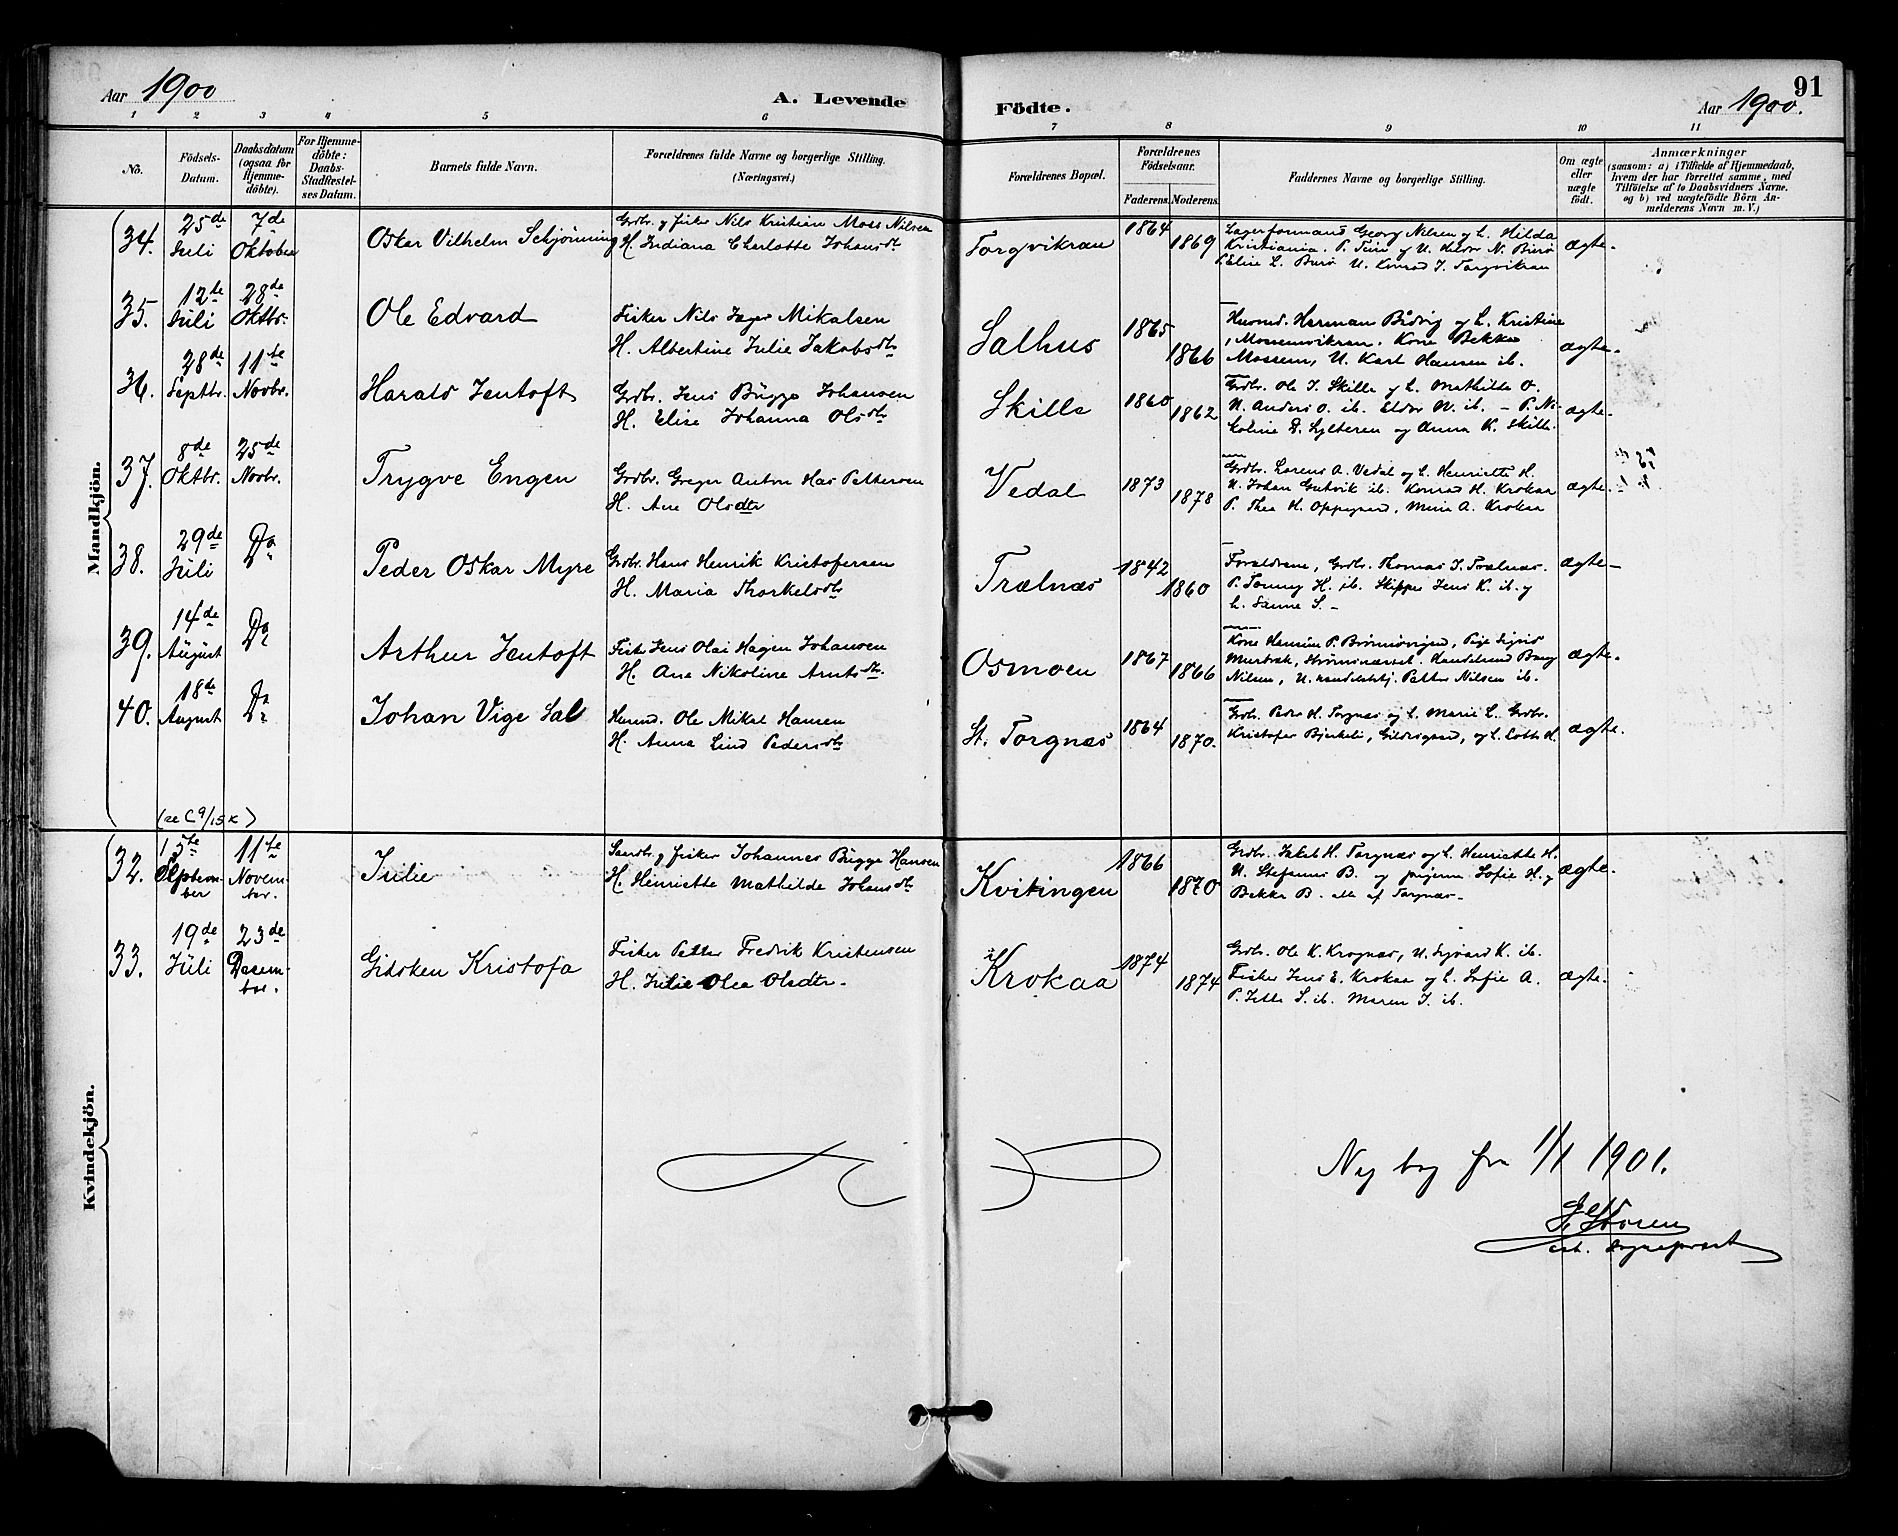 Aar 1900
A. Levende
Födte.
91
Aar 1900.
1 2 3 4 5 6 7 8 9 10 11
No.
Födsels-
Datum.
Daabsdatum
(ogsaa for
Hjemme-
döbte).
For Hjemme-
döbte:
Daabs-
Stadfæstel-
ses Datum.
Barnets fulde Navn.
Forældrenes fulde Navne og borgerlige Stilling.
(Næringsvei.)
Forældrenes Bopæl.
Forældrenes
Födselsaar.
Faderens. Moderens.
Faddernes Navne og borgerlige Stilling.
Om ægte
eller
uægte
födt.
Anmærkninger
(saasom: a) i Tilfælde af Hjemmedaab,
hvem der har forrettet samme, med
Tilföielse af to Daabsvidners Navne.
og b) ved uægtefödte Börn An-
melderens Navn m. V.)
Mandkjön.
34. 25de Juli
7de Oktober
Oskar Vilhelm Schjönning
Grdbr. g fisker Nils Kristian Moss Nilsen
H. Indiana Charlotte Johansdt
Torgvikran
1864
1869
Lagerformand Georg Nilsen og h. Hilda
Kristiania. P.
P. Elise L. U. Konrad J. Torgvikran
ægte.
35. 12te Juli
28de Oktbr.
Ole Edvard
Fisker Nils Jæger Mikalsen
H. Albertine Julie Jakobsdt
Salhus
1865
1866
Husmd. Herman og h. Kristine
Mossemvikran. Kone Bekka
Mossem, U. Karl Hansen ib.
ægte.
36. 28de Septbr.
11te Novbr.
Harald Jentoft
Grdbr. Jens Bügge Johansen
H. Elise Johanna Olsdt
Skille
1860
1862
Grdbr. Ole J. Skille og h. Mathilde O.
U. Anders O. ib. Eldor N. ib. – P. Ni-
koline D. og Anna K. Skille.
ægte.
37. 8de Oktbr.
25de Novbr.
Trygve Engen
Grdbr. Greger Anton Has Pettersen
H. Ane Olsdtr
Vedal
1873
1878
Grdbr. Lorens A. Vedal og h. Henriette H.
U. Johan ib. Konrad H. Krokaa
P. Thea H. Oppegaard, A. Krokaa
ægte.
38. 29de Juli
Do
Peder Oskar Myre
Grdbr. Hans Henrik Kristofersen
H. Maria Thorkelsdt
Trælnæs
1842
1860
Forældrene, Grdbr. Thomas J. Trælnæs.
P. H. ib. Skipper Jens K. ib. g
h. S. –
ægte –
39. 14de August
Do
Arthur Jentoft
Fisk. Jens Olai Hagen Johansen
H. Ane Nikoline Arntsdt.
Osmoen
1867
1866
Kone Hansine P. Pige Sigrid
Nilsen, U. Petter Nilsen ib.
ægte.
40. 18de August
Do
Johan Vige Sal
Husmd. Ole Mikal Hansen
H. Anna Lind Pedersdt
St. Torgnæs
1864
1870.
Grdbr. Peder H. Torgnæs og h. Marie L. Grdbr.
Kristofer Bjerkeli, og h. H.
ægte.
(se C 9/15 K)
Kvindekjön.
32. 15te September
11te November.
Julie
Sandbr. g fisker Johannes Bügge Hansen
H. Henriette Mathilde Johansdt
Kvitingen
1866
1870
Grdbr. Jakob H. Torgnæs og h. Henriette H.
U. Stefanus B. og Sofie H. g
Bekka B. alle af Torgnæs –
ægte.
33. 19de Juli
23de Desember.
Gidsken Kristofa
Fisker Petter Fredrik Kristensen
H. Julie Olea Olsdtr.
Krokaa
1874
1874
Grdbr. Ole K. Krognæs, U. Sigvard K. ib.
Fisker Jens E. Krokaa og h. Sofie A.
P. S. ib. Maren J. ib.
ægte.
Ny bog fra 1/1 1901.
sogneprest